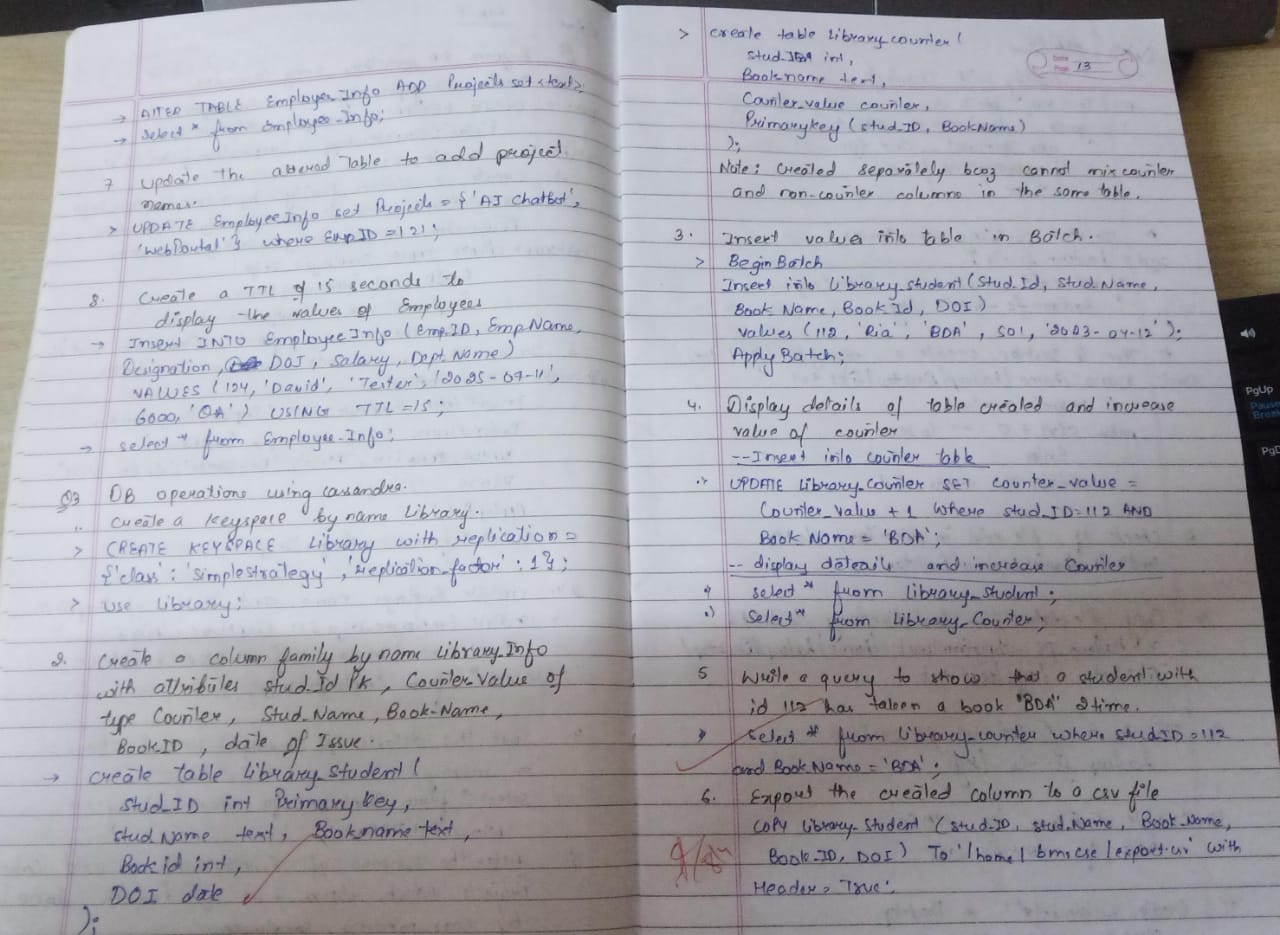 → ALTER TABLE Employee_Info ADD Projects set <text>;
→ select * from Employee_Info;
7 Update the altered Table to add project
names.
> UPDATE Employee_Info set Projects = {'AI chatbot',
'WebPortal'} where Emp_ID = 121;
8. Create a TTL of 15 seconds to
display the values of Employees
→ Insert INTO Employee_Info (Emp_ID, Emp_Name,
Designation, DOJ, Salary, Dept_Name)
VALUES (124, 'David', 'Tester', '2025-07-11',
6000, 'QA') USING TTL = 15;
→ select * from Employee_Info;
Q3 DB operations using cassandra.
1. Create a keyspace by name Library.
> CREATE KEYSPACE Library with replication =
{'class': 'simplestrategy', 'replication_factor': 1};
> use library;
2. Create a column family by name Library_Info
with attributes Stud_Id PK, Counter_Value of
type Counter, Stud_Name, Book-Name,
Book_ID, date of Issue.
→ create table library_student (
Stud_ID int Primary key,
Stud_Name text, Book_name text,
Book_id int,
DOI date
);
> create table library_counter (
stud_ID int,
Book_name text,
Counter_value counter,
Primarykey (stud_ID, BookName)
);
13
Note: Created separately bcoz cannot mix counter
and non-counter columns in the same table.
3. Insert values into table in Batch.
> Begin Batch
Insert into library_student (Stud_Id, Stud_Name,
Book_Name, Book_Id, DOI)
values (112, 'Ria', 'BDA', 501, '2023-04-12');
Apply Batch;
4. Display details of table created and increase
value of counter
--Insert into counter table
•> UPDATE Library_Counter SET counter_value =
Counter_Value + 1 where stud_ID=112 AND
Book_Name = 'BDA';
-- display details and increase Counter
select * from library_student;
•) Select * from Library_Counter;
5 Write a query to show that a student with
id 112 has taken a book "BDA" 2 time.
> Select * from library_counter where stud_ID = 112
and Book_Name = 'BDA';
6. Export the created column to a csv file
COPY library_student (stud_ID, stud_Name, Book_Name,
Book_ID, DOI) To '/home/bmscse/export.csv' with
Header = True;
PgUp
Pause
Break
PgD